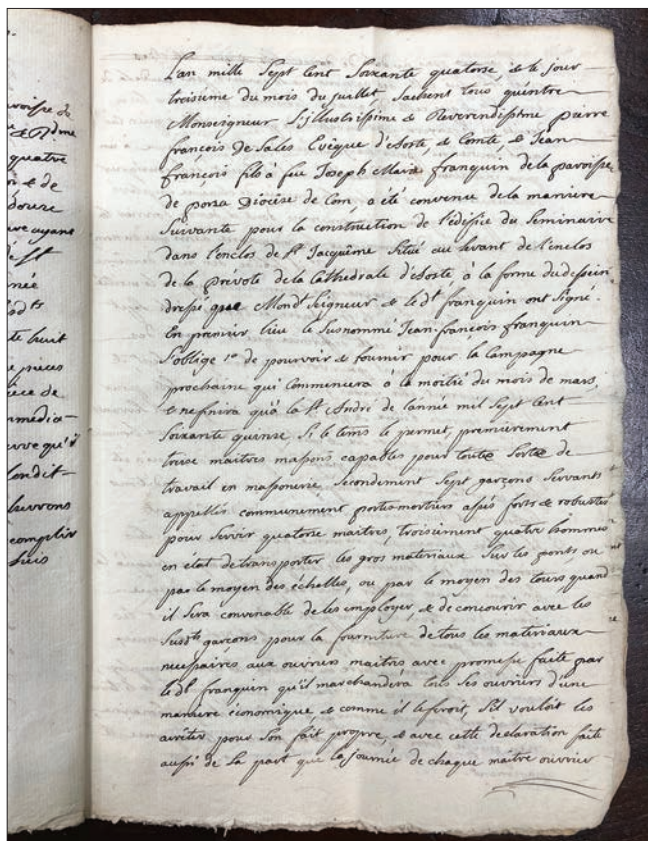 L'an mille Sept Cent Soixante quatorse, & le jour
troisieme du mois du juillet, Sachent tous qu'entre
Monseigneur L'jllustrissime & Reverendissime pierre
françois de Sales Evêque d'Aoste, & Comte, & Jean
françois fils à feu Joseph Marie franquin de la paroisse
de porza Diocèse de Com, a été convenu de la maniere
Suivante pour la construction de l'edifice du Seminaire
dans l'enclos de St Jacquême Situé au levant de l'enclos
de la prévote de la Cathedrale d'Aoste à la forme du dessein
dressé que Mondt Seigneur & le dt franquin ont Signé.
En premier lieu le Susnommé Jean-françois franquin
S'oblige 1o de pourvoir & fournir pour la Campagne
prochaine qui Commencera à la moitié du mois de mars,
& ne finira qu'à la St André de l'année mil Sept Cent
Soixante quinse, Si le tems le permet, premièrement
treise maitres massons capables pour toute Sorte de
travail en massonerie, Secondement Sept garçons Servants
appellés communement portemortiers assés forts & robustes
pour Servir quatorse maitres, troisiement quatre hommes
en état de transporter les gros materiaux Sur les ponts, ou
par le moyen des échelles, ou par le moyen des tours, quand
il Sera convenable de les employer, & de concourir avec les
Susdts garçons pour la fourniture de tous les materiaux
necessaires aux ouvriers maitres avec promesse faite par
le dt franquin qu'il marchandera tous Ses ouvriers d'une
manière économique, & comme il le feroit, S'il vouloit les
arrêter pour Son fait propre, & avec cette declaration faite
aussi de Sa part que la journée de chaque maitre ouvrier
paroisse de
& Rdme
quatre
& de
douze
ayant
de St
née
sdts
te huit
pieces
ièce de
immedia-
qu'il
Condit
livrons
complir
Suis